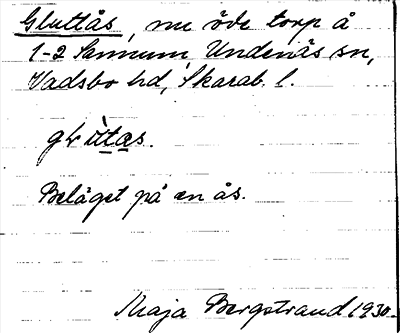 Gluttås, nu öde torp å
1-2 Sannum, Undenäs sn,
Vadsbo hd, Skarab. l.
Beläget på en ås.
Maja Bergstrand 1930.